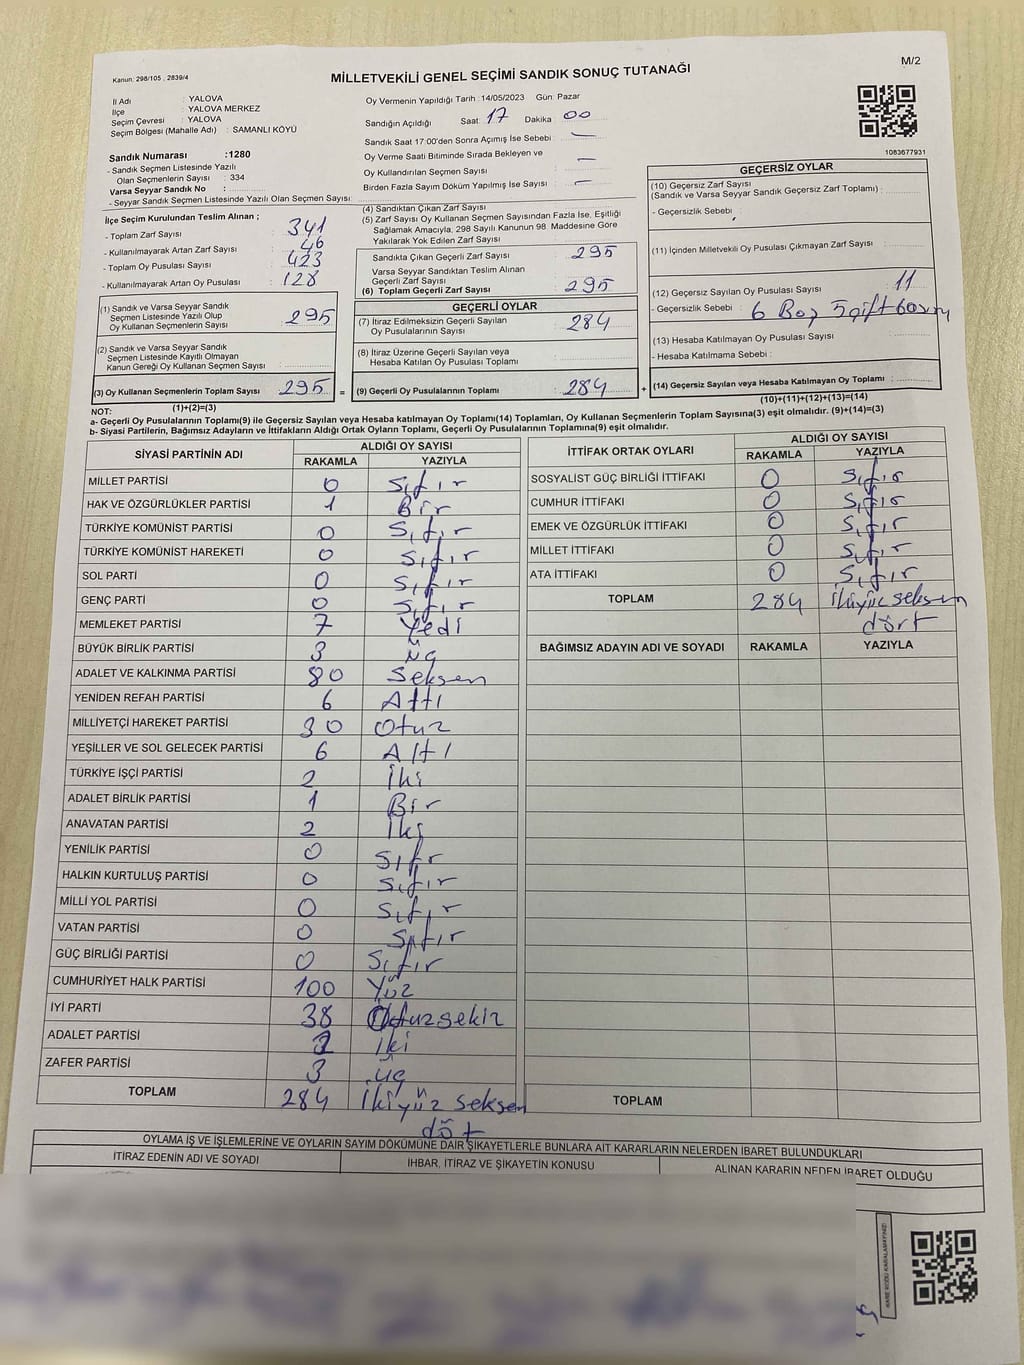 Kanun: 298/105 , 2839/4
MİLLETVEKİLİ GENEL SEÇİMİ SANDIK SONUÇ TUTANAĞI
M/2
İl Adı : YALOVA
İlçe : YALOVA MERKEZ
Seçim Çevresi : YALOVA
Seçim Bölgesi (Mahalle Adı) : SAMANLI KÖYÜ
Sandık Numarası :1280
- Sandık Seçmen Listesinde Yazılı
Olan Seçmenlerin Sayısı : 334
Varsa Seyyar Sandık No :
- Seyyar Sandık Seçmen Listesinde Yazılı Olan Seçmen Sayısı:
Oy Vermenin Yapıldığı Tarih : 14/05/2023 Gün: Pazar
Sandığın Açıldığı Saat: 17 Dakika : 00
Sandık Saat 17:00'den Sonra Açımış İse Sebebi : —
Oy Verme Saati Bitiminde Sırada Bekleyen ve
Oy Kullandırılan Seçmen Sayısı : —
Birden Fazla Sayım Döküm Yapılmış İse Sayısı : —
1083677931
İlçe Seçim Kurulundan Teslim Alınan ;
- Toplam Zarf Sayısı : 341
- Kullanılmayarak Artan Zarf Sayısı : 46
- Toplam Oy Pusulası Sayısı : 423
- Kullanılmayarak Artan Oy Pusulası : 128
(1) Sandık ve Varsa Seyyar Sandık
Seçmen Listesinde Yazılı Olup
Oy Kullanan Seçmenlerin Sayısı : 295
(2) Sandık ve Varsa Seyyar Sandık
Seçmen Listesinde Kayıtlı Olmayan
Kanun Gereği Oy Kullanan Seçmen Sayısı :
(3) Oy Kullanan Seçmenlerin Toplam Sayısı : 295 =
(1)+(2)=(3)
(4) Sandıktan Çıkan Zarf Sayısı :
(5) Zarf Sayısı Oy Kullanan Seçmen Sayısından Fazla İse, Eşitliği
Sağlamak Amacıyla, 298 Sayılı Kanunun 98. Maddesine Göre
Yakılarak Yok Edilen Zarf Sayısı :
Sandıkta Çıkan Geçerli Zarf Sayısı : 295
Varsa Seyyar Sandıktan Teslim Alınan
Geçerli Zarf Sayısı :
(6) Toplam Geçerli Zarf Sayısı : 295
GEÇERLİ OYLAR
(7) İtiraz Edilmeksizin Geçerli Sayılan
Oy Pusulalarının Sayısı : 284
(8) İtiraz Üzerine Geçerli Sayılan veya
Hesaba Katılan Oy Pusulası Toplamı :
(9) Geçerli Oy Pusulalarının Toplamı : 284 +
GEÇERSİZ OYLAR
(10) Geçersiz Zarf Sayısı
(Sandık ve Varsa Seyyar Sandık Geçersiz Zarf Toplamı) :
- Geçersizlik Sebebi :
(11) İçinden Milletvekili Oy Pusulası Çıkmayan Zarf Sayısı :
(12) Geçersiz Sayılan Oy Pusulası Sayısı : 11
- Geçersizlik Sebebi : 6 Boş 5 çift
(13) Hesaba Katılmayan Oy Pusulası Sayısı :
- Hesaba Katılmama Sebebi :
(14) Geçersiz Sayılan veya Hesaba Katılmayan Oy Toplamı :
(10)+(11)+(12)+(13)=(14)
NOT:
a- Geçerli Oy Pusulalarının Toplamı(9) ile Geçersiz Sayılan veya Hesaba katılmayan Oy Toplamı(14) Toplamları, Oy Kullanan Seçmenlerin Toplam Sayısına(3) eşit olmalıdır. (9)+(14)=(3)
b- Siyasi Partilerin, Bağımsız Adayların ve İttifakların Aldığı Ortak Oyların Toplamı, Geçerli Oy Pusulalarının Toplamına(9) eşit olmalıdır.
SİYASİ PARTİNİN ADI
ALDIĞI OY SAYISI
RAKAMLA YAZIYLA
MİLLET PARTİSİ 0 Sıfır
HAK VE ÖZGÜRLÜKLER PARTİSİ 1 Bir
TÜRKİYE KOMÜNİST PARTİSİ 0 Sıfır
TÜRKİYE KOMÜNİST HAREKETİ 0 Sıfır
SOL PARTİ 0 Sıfır
GENÇ PARTİ 0 Sıfır
MEMLEKET PARTİSİ 7 Yedi
BÜYÜK BİRLİK PARTİSİ 3 Üç
ADALET VE KALKINMA PARTİSİ 80 Seksen
YENİDEN REFAH PARTİSİ 6 Altı
MİLLİYETÇİ HAREKET PARTİSİ 30 Otuz
YEŞİLLER VE SOL GELECEK PARTİSİ 6 Altı
TÜRKİYE İŞÇİ PARTİSİ 2 İki
ADALET BİRLİK PARTİSİ 1 Bir
ANAVATAN PARTİSİ 2 İki
YENİLİK PARTİSİ 0 Sıfır
HALKIN KURTULUŞ PARTİSİ 0 Sıfır
MİLLİ YOL PARTİSİ 0 Sıfır
VATAN PARTİSİ 0 Sıfır
GÜÇ BİRLİĞİ PARTİSİ 0 Sıfır
CUMHURİYET HALK PARTİSİ 100 Yüz
İYİ PARTİ 38 Otuzsekiz
ADALET PARTİSİ 2 İki
ZAFER PARTİSİ 3 Üç
TOPLAM 284 İkiyüz seksen
döt
İTTİFAK ORTAK OYLARI
ALDIĞI OY SAYISI
RAKAMLA YAZIYLA
SOSYALİST GÜÇ BİRLİĞİ İTTİFAKI 0 Sıfır
CUMHUR İTTİFAKI 0 Sıfır
EMEK VE ÖZGÜRLÜK İTTİFAKI 0 Sıfır
MİLLET İTTİFAKI 0 Sıfır
ATA İTTİFAKI 0 Sıfır
TOPLAM 284 İkiyüz seksen
dört
BAĞIMSIZ ADAYIN ADI VE SOYADI RAKAMLA YAZIYLA
TOPLAM
OYLAMA İŞ VE İŞLEMLERİNE VE OYLARIN SAYIM DÖKÜMÜNE DAİR ŞİKAYETLERLE BUNLARA AİT KARARLARIN NELERDEN İBARET BULUNDUKLARI
İTİRAZ EDENİN ADI VE SOYADI
İHBAR, İTİRAZ VE ŞİKAYETİN KONUSU
ALINAN KARARIN NEDEN İBARET OLDUĞU
KARE KODU KARALAMAYINIZ!